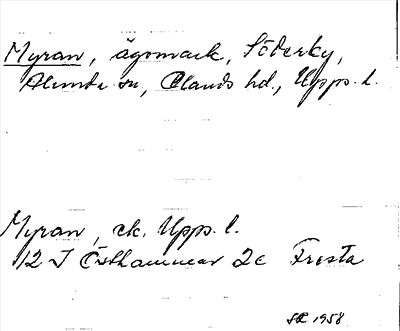 Myran, ägomark, Söderby,
Alunda sn, Olands hd., Upps. l.
Myran, ek. Upps. l.
12 I Östhammar 2c Frösta
SR 1958